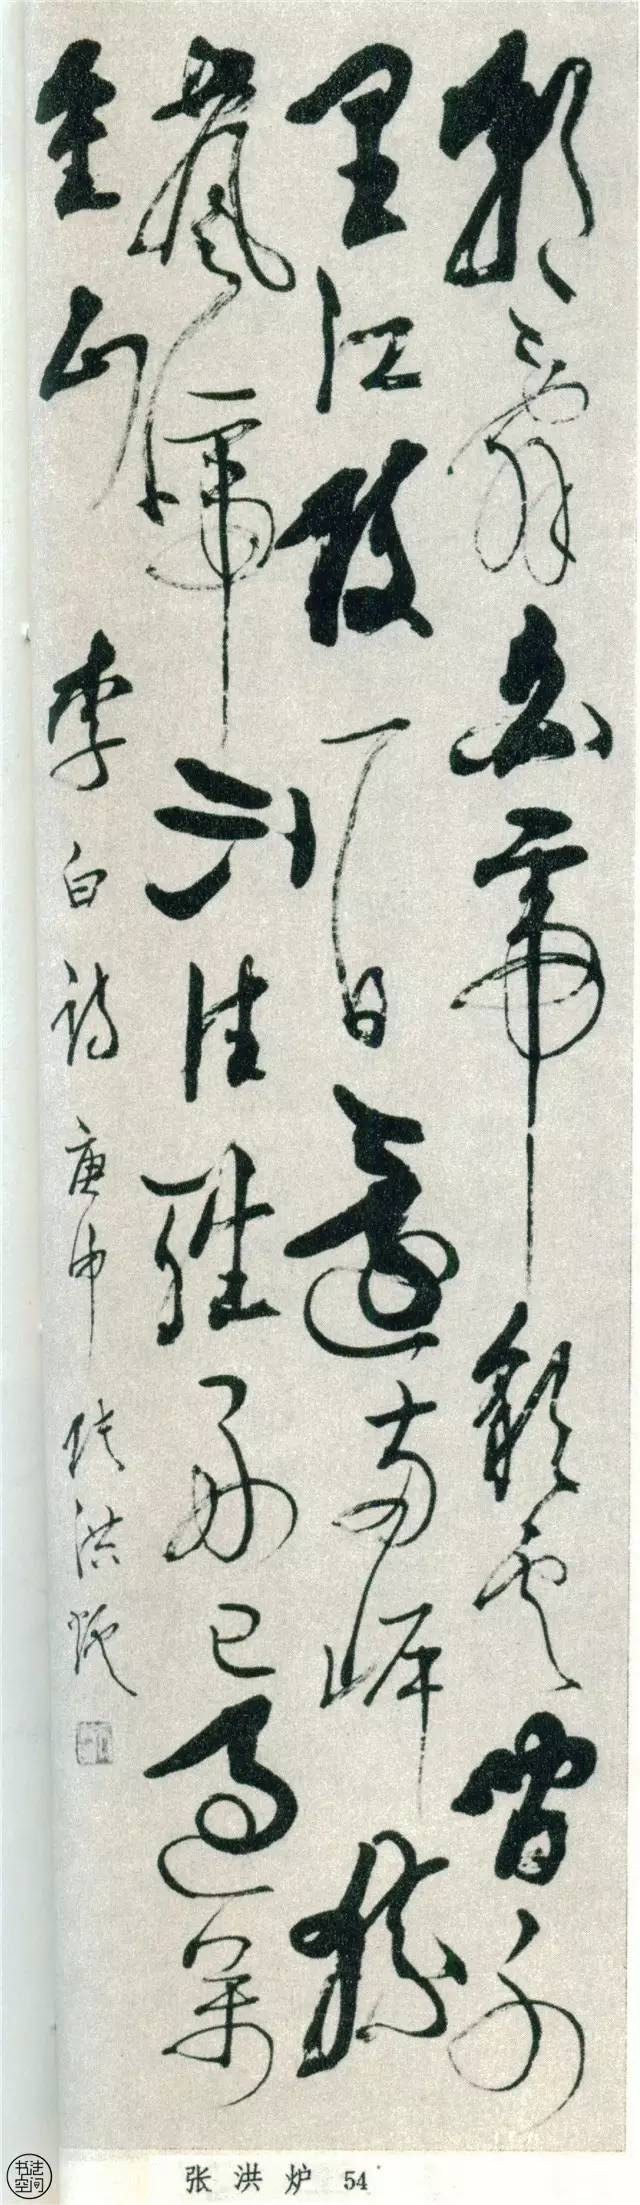 朝辞白帝彩雲間千
里江陵一日還兩岸猿
聲啼不住輕舟已過萬
重山 李白詩 庚申 张洪炉
张洪炉 54
书法空间